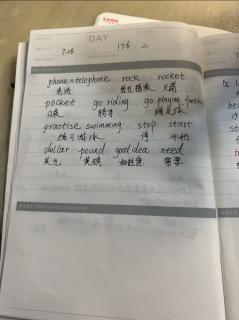 DAY
7.16 17:6 二
phone=telephone rock rocket
电话 火箭
pocket go riding go playing football
口袋 骑车 踢足球
practise swimming stop start
练习游泳 停 开始
dollar pound good idea need
美元 英镑 好主意 需要